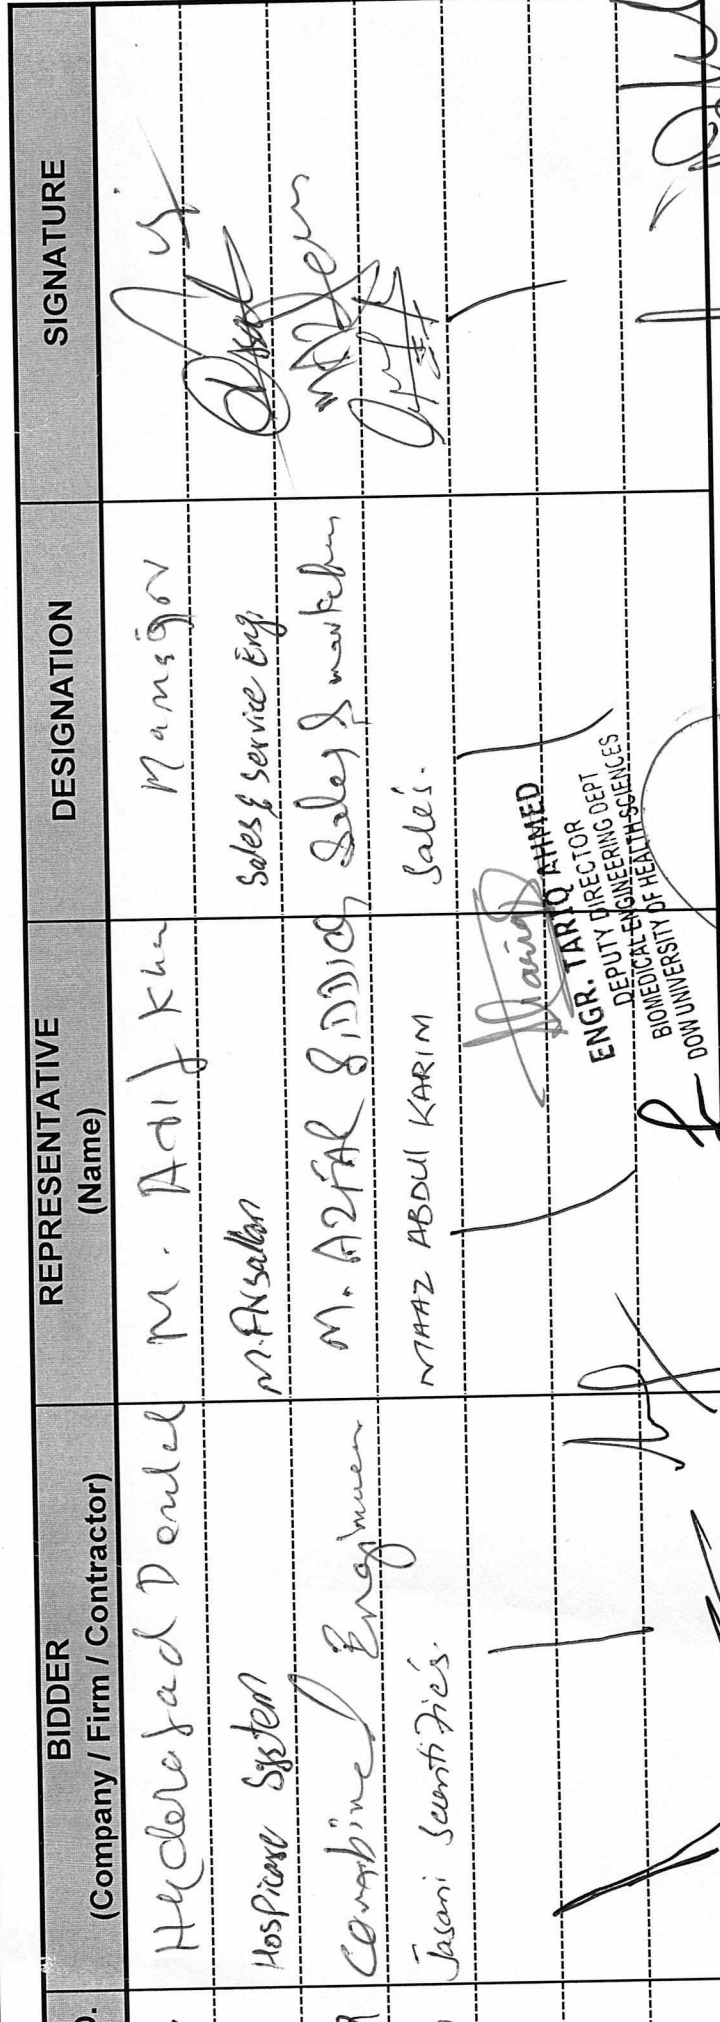 BIDDER
(Company / Firm / Contractor)
REPRESENTATIVE
(Name)
DESIGNATION
SIGNATURE
Hyderabad Dental
M. Atif Khan
Manager
Hospicare System
M. Arsallan
Sales & Service Eng.
Combined
M. AZFAR SIDDIQ
Sales & marketing
Jasani Scientific's.
MAAZ ABDUL KARIM
Sales.
ENGR. TARIQ AHMED
DEPUTY DIRECTOR
BIOMEDICAL ENGINEERING DEPT
DOW UNIVERSITY OF HEALTH SCIENCES